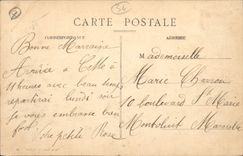 54
CARTE POSTALE
CORRESPONDANCE
ADRESSE
Bonne Marraine
Arrivée à Cette à
11 heures avec beau temps
repartirai lundi soir
Je vous embrasse bien
fort
Ta petite Rose
Mademoiselle
Marie
10 Boulevard Ste Marie
Montolivet Marseille